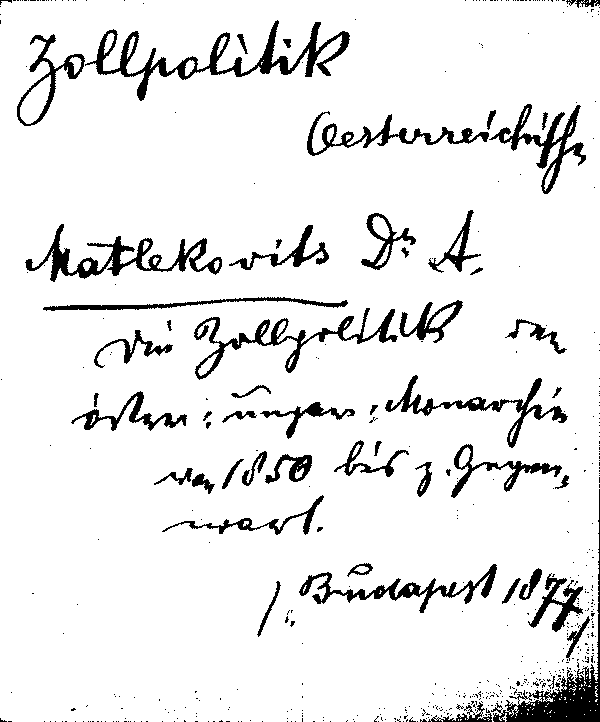 Zollpolitik
Oesterreichische
Matlekovits Dr. A.
Die Zollpolitik der
österr: ungar: Monarchie
von 1850 bis z. Gegen-
wart.
/: Budapest 1877 :/